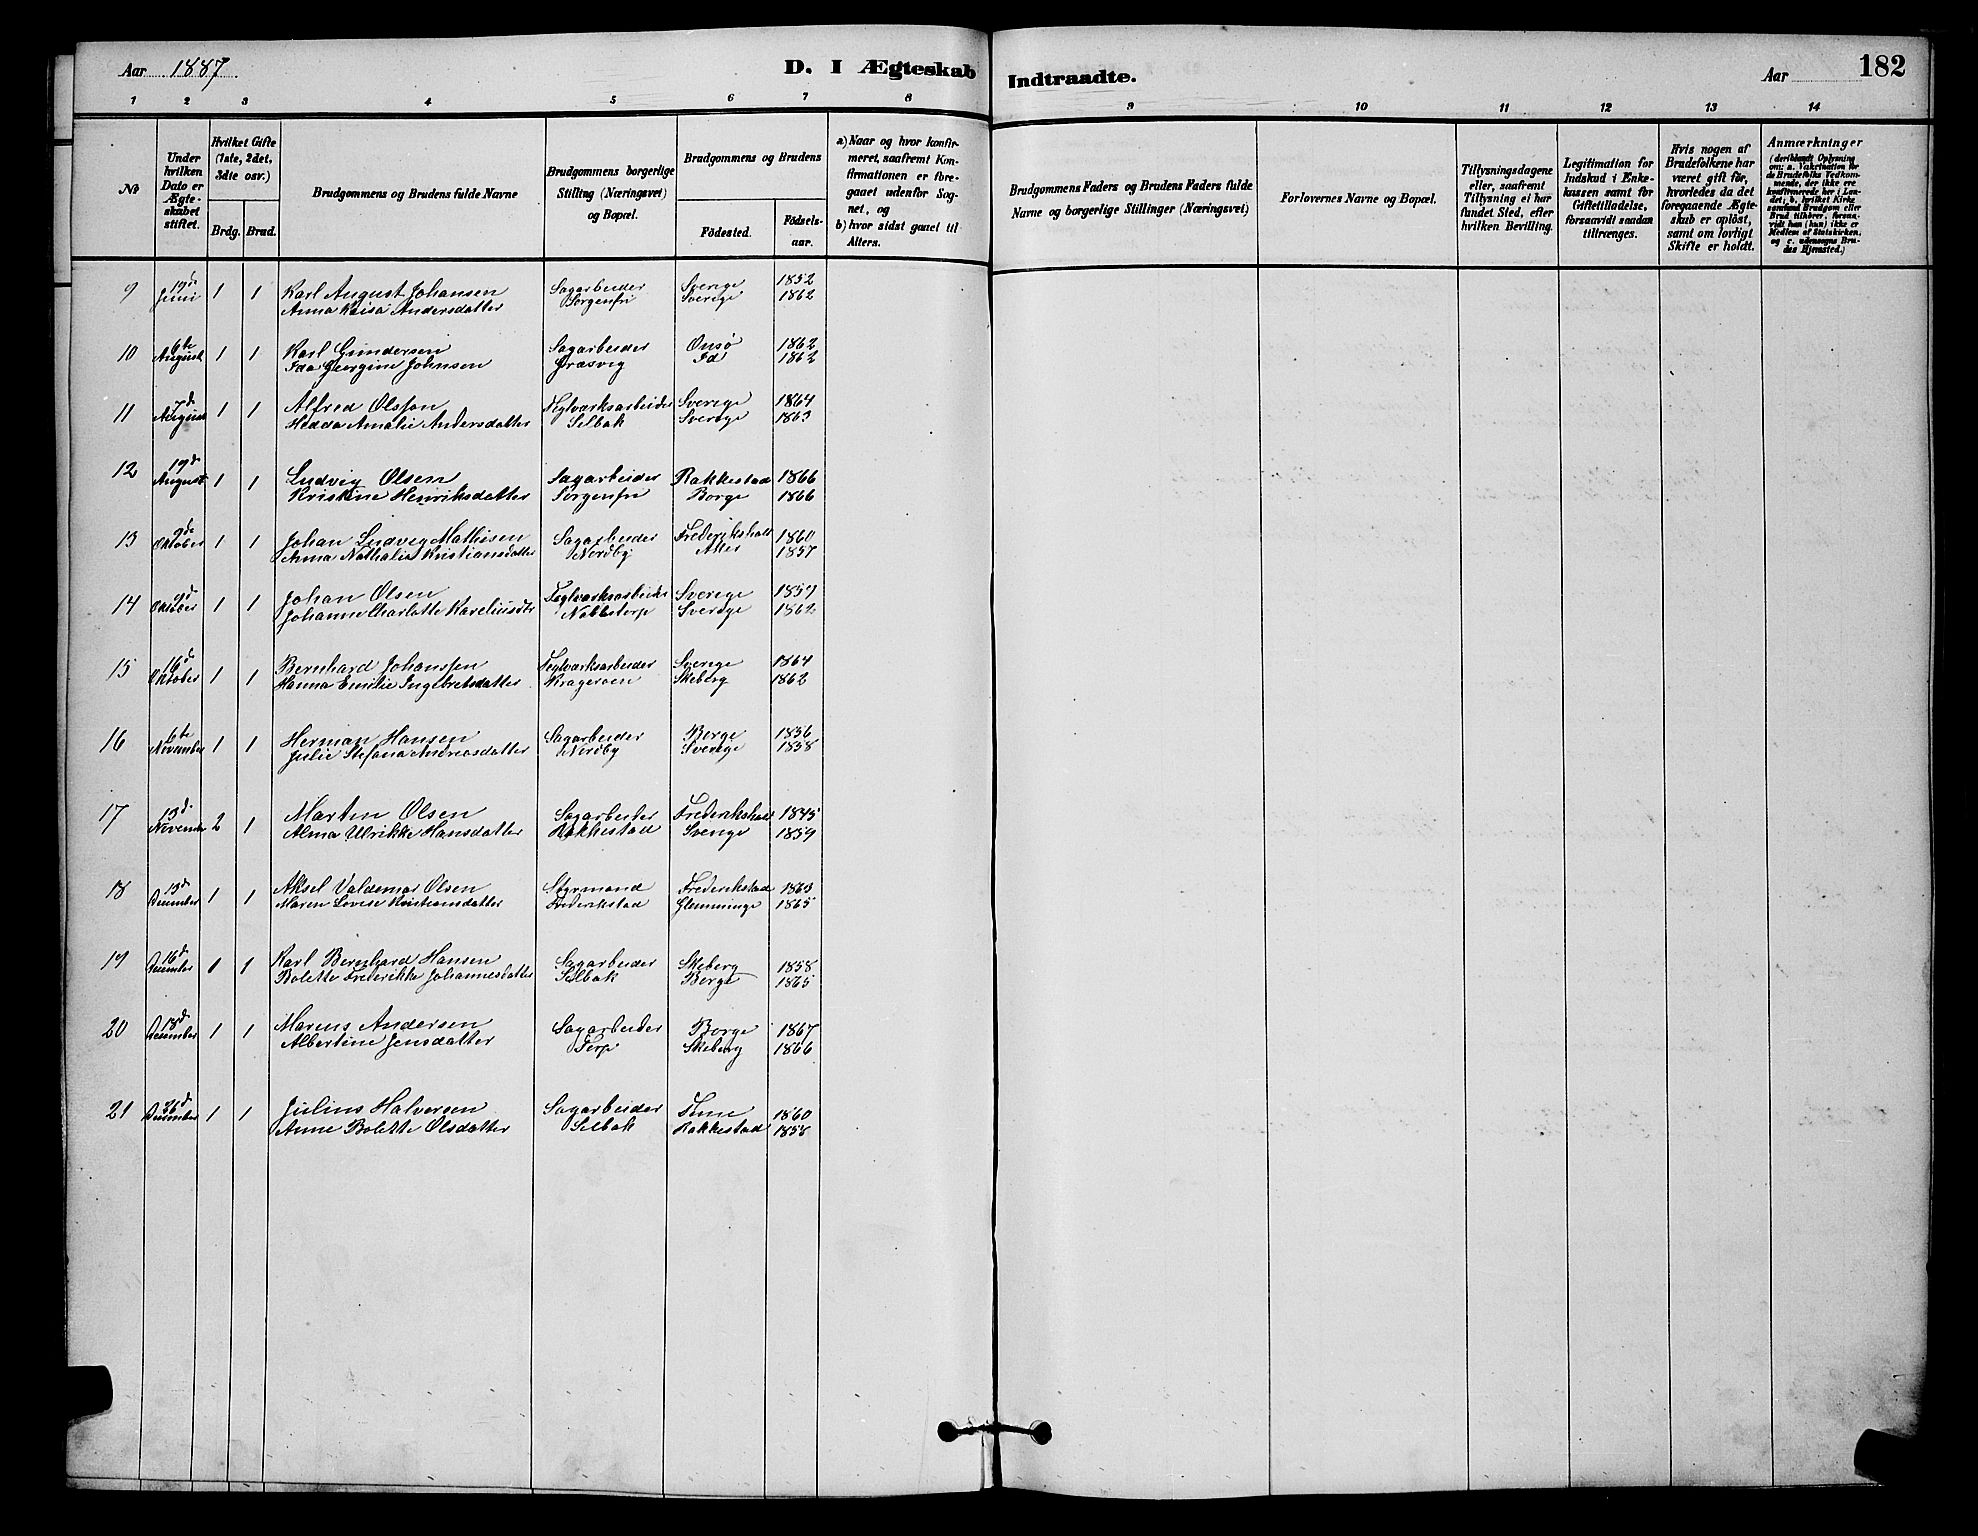 Aar 1887. D. I Ægteskab Indtraadte. Aar 182
1 2 3 4 5 6 7 8 9 10 11 12 13 14
No
Under hvilken Dato er Ægte-skabet stiftet.
Hvilket Gifte (1ste, 2det, 3die osv.)
Brdg. Brud.
Brudgommens og Brudens fulde Navne
Brudgommens borgerlige Stilling (Næringsvei) og Bopæl.
Brudgommens og Brudens
Födested. Födsels-aar.
a) Naar og hvor konfir-meret, saafremt Kon-firmationen er fore-gaaet udenfor Sog-net, og
b) hvor sidst gaaet til Alters.
Brudgommens Faders og Brudens Faders fulde Navne og borgerlige Stillinger (Næringsvei)
Forlovernes Navne og Bopæl.
Tillysningsdagene eller, saafremt Tillysning ei har fundet Sted, efter hvilken Bevilling.
Legitimation for Indskud i Enke-kassen samt for Giftetilladelse, forsaavidt saadan tiltrænges.
Hvis nogen af Brudefolkene har været gift før, hvorledes da det foregaaende Ægte-skab er oplöst, samt om lovligt Skifte er holdt.
Anmærkninger
9 19d Juni 1 1 Karl August Johansen Sagarbeider Sverige 1852
Anna Kaisa Andersdatter Sorgenfri Sverige 1862
10 6te August 1 1 Karl Gundersen Sagarbeider Onsø 1862
Ida Georgine Johnsen Græsvig Id 1862
11 7d August 1 1 Alfred Olsson Teglværksarbeider Sverige 1864
Hedda Amalie Andersdatter Selbak Sverige 1863
12 19d August 1 1 Ludvig Olsen Sagarbeider Rakkestad 1866
Kristine Henriksdatter Sorgenfri Borge 1866
13 9de Oktober 1 1 Johan Ludvig Mathisen Sagarbeider Frederikshald 1860
Anna Nathalia Kristiansdatter Nordby 1857
14 9d Oktober 1 1 Johan Olsen Teglværksarbeider Sverige 1859
Johanne Charlotte Kareliusdtr Nabbetorp Sverige 1862
15 16d Oktober 1 1 Bernhard Johansen Teglværksarbeider Sverige 1864
Hanna Emilie Ingebretsdatter Krageroen Skeberg 1862
16 6te November 1 1 Herman Hansen Sagarbeider Borge 1856
Julie Stefana Andreasdatter Nordby Sverige 1858
17 13d November 2 1 Martin Olsen Sagarbeider Frederikshald 1845
Alma Ulrikke Hansdatter Rakkestad Sverige 1859
18 13d December 1 1 Aksel Valdemar Olsen Styrmand Frederikstad 1863
Maren Lovise Kristiansdatter Frederikstad Glemminge 1865
19 16d December 1 1 Karl Bernhard Hansen Sagarbeider Skeberg 1858
Bolette Frederikke Johannesdatter Selbak Borge 1865
20 18d December 1 1 Marius Andersen Sagarbeider Borge 1867
Albertine Jensdatter Torp Skeberg 1866
21 26d December 1 1 Julius Halvorsen Sagarbeider Tune 1860
Anne Bolette Olsdatter Selbak Rakkestad 1858